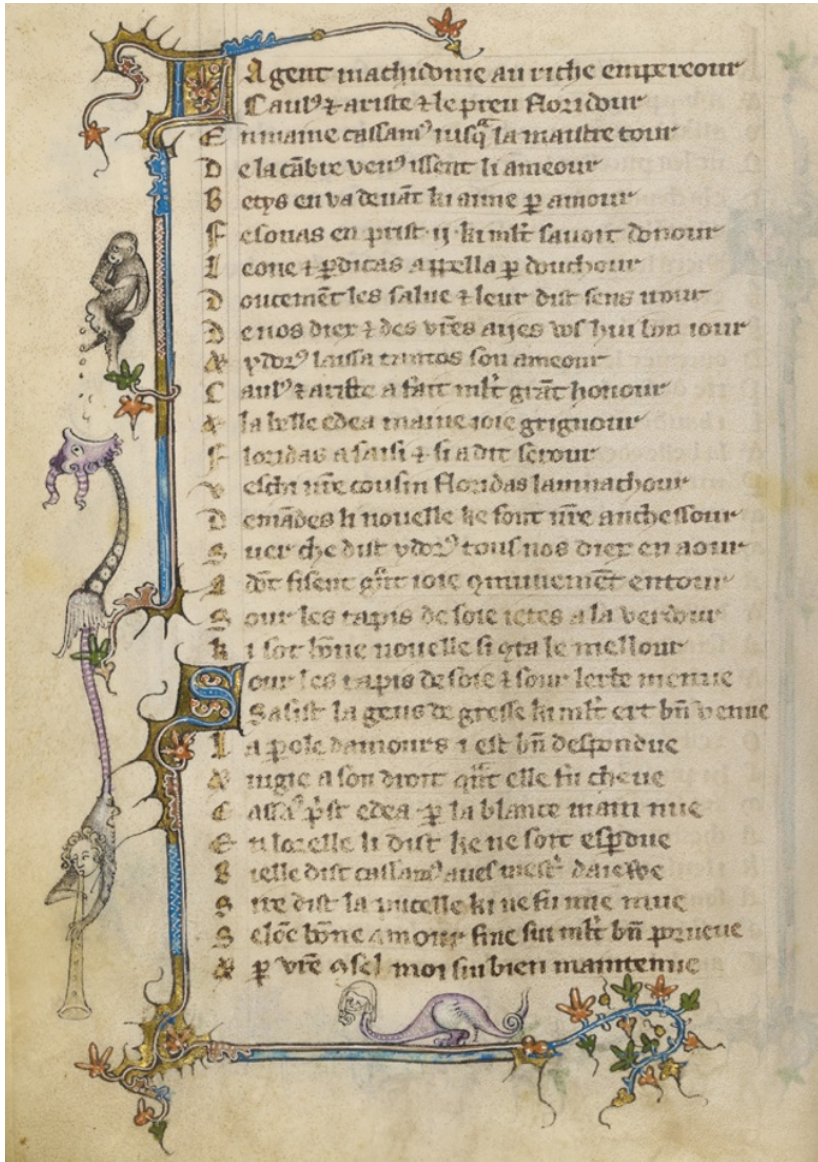 La gent machidone au riche empereour
Caulꝰ ⁊ ariste ⁊ le preu floridour
En maine cassamꝰ iusqᷓ la maistre tour
De la cābre venꝰ issent li ameour
Betys en va deuāt ki aime ꝑ amour
Fesonas en prist ·ij· ki mlt̄ sauoit donour
Leone ⁊ ꝑdicas appella ꝑ douchour
Doucemēt les salue ⁊ leur dist sens
De nos diex ⁊ des vr̄es aijes hui bon iour
& ydorꝰ laissa tantos son ameour
Caulꝰ ⁊ ariste a fait mlt̄ grāt honour
& la belle edea maine ioie grignour
Floridas a saisi ⁊ si a dit serour
Veschi nr̄e cousin floridas
Demādes li nouelle ke font nr̄e anchessour
Suer che dist ydorꝰ tous nos diex en aour
Adōt fisent grāt ioie entour
Sour les tapis de soie ietes a la verdour
Ki sot bōne nouelle si ꝯta le mellour
Sour les tapis de soie ⁊ sour lerbe menue
Sasist la gens de gresse ki mlt̄ ert bn̄ venue
La ꝑole damours i est bn̄ despondue
& iugie a son droit qn̄t elle fu cheue
Cassāꝰ pͥst edea ꝑ la blance main nue
En lorelle li dist ke ne soit esꝑdue
Bielle dist cassamꝰ aues
Sire dist la pucelle ki ne fu mie mue
Selōc bōne amour fine sui mlt̄ bn̄ porueue
& ꝑ vr̄e ꝯsel moi sui bien maintenue